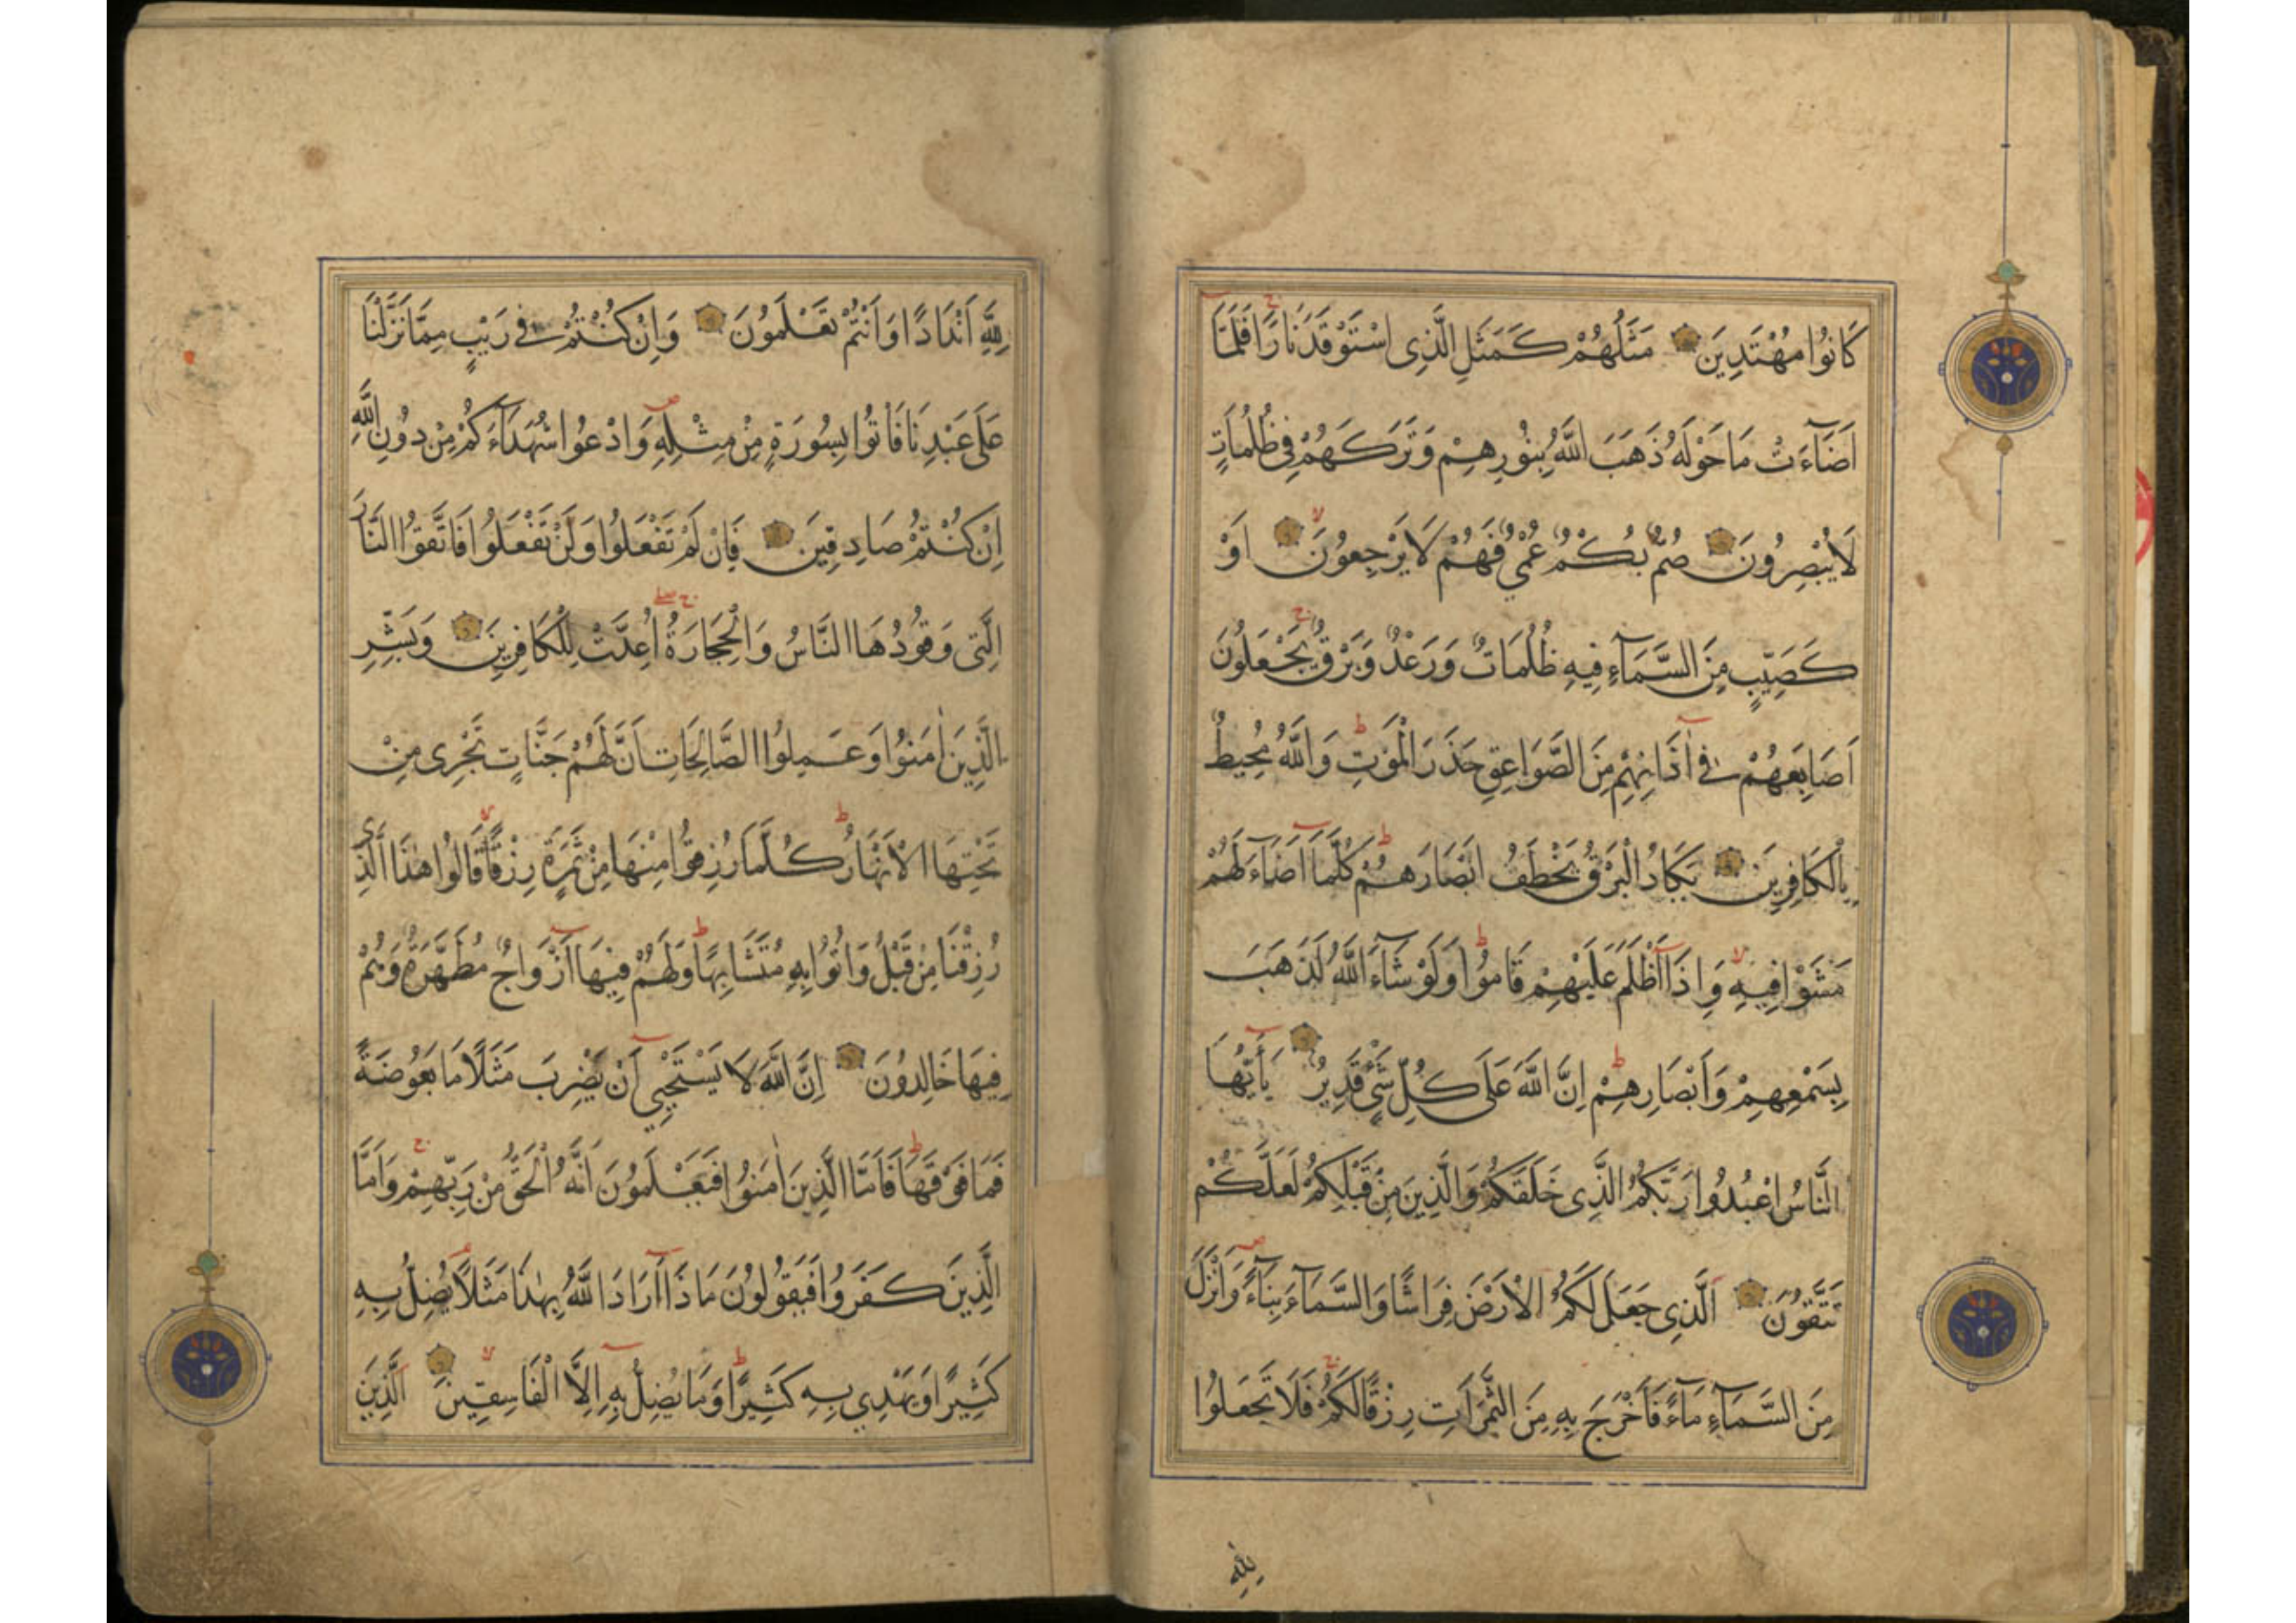 كَانُوا مُهْتَدِينَ مَثَلُهُمْ كَمَثَلِ الَّذِى اسْتَوْقَدَ نَارًا فَلَمَّا
اَضَآءَتْ مَا حَوْلَهُ ذَهَبَ اللَّهُ بِنُورِهِمْ وَتَرَكَهُمْ فِى ظُلُمَاتٍ
لَا يُبْصِرُونَ صُمٌّ بُكْمٌ عُمْيٌ فَهُمْ لَا يَرْجِعُونَ اَوْ
كَصَيِّبٍ مِنَ السَّمَآءِ فِيهِ ظُلُمَاتٌ وَرَعْدٌ وَبَرْقٌ يَجْعَلُونَ
اَصَابِعَهُمْ فِى اٰذَانِهِمْ مِنَ الصَّوَاعِقِ حَذَرَ الْمَوْتِ وَاللَّهُ مُحِيطٌ
بِالْكَافِرِينَ يَكَادُ الْبَرْقُ يَخْطَفُ اَبْصَارَهُمْ كُلَّمَآ اَضَآءَ لَهُمْ
مَشَوْا فِيهِ وَاِذَآ اَظْلَمَ عَلَيْهِمْ قَامُوا وَلَوْ شَآءَ اللَّهُ لَذَهَبَ
بِسَمْعِهِمْ وَاَبْصَارِهِمْ اِنَّ اللَّهَ عَلَى كُلِّ شَيْءٍ قَدِيرٌ يَآ اَيُّهَا
النَّاسُ اعْبُدُوا رَبَّكُمُ الَّذِى خَلَقَكُمْ وَالَّذِينَ مِنْ قَبْلِكُمْ لَعَلَّكُمْ
تَتَّقُونَ اَلَّذِى جَعَلَ لَكُمُ الْاَرْضَ فِرَاشًا وَالسَّمَآءَ بِنَآءً وَاَنْزَلَ
مِنَ السَّمَآءِ مَآءً فَاَخْرَجَ بِهِ مِنَ الثَّمَرَاتِ رِزْقًا لَكُمْ فَلَا تَجْعَلُوا
لِلَّهِ
لِلَّهِ اَنْدَادًا وَاَنْتُمْ تَعْلَمُونَ وَاِنْ كُنْتُمْ فِى رَيْبٍ مِمَّا نَزَّلْنَا
عَلَى عَبْدِنَا فَاْتُوا بِسُورَةٍ مِنْ مِثْلِهِ وَادْعُوا شُهَدَآءَكُمْ مِنْ دُونِ اللَّهِ
اِنْ كُنْتُمْ صَادِقِينَ فَاِنْ لَمْ تَفْعَلُوا وَلَنْ تَفْعَلُوا فَاتَّقُوا النَّارَ
الَّتِى وَقُودُهَا النَّاسُ وَالْحِجَارَةُ اُعِدَّتْ لِلْكَافِرِينَ وَبَشِّرِ
الَّذِينَ اٰمَنُوا وَعَمِلُوا الصَّالِحَاتِ اَنَّ لَهُمْ جَنَّاتٍ تَجْرِى مِنْ
تَحْتِهَا الْاَنْهَارُ كُلَّمَا رُزِقُوا مِنْهَا مِنْ ثَمَرَةٍ رِزْقًا قَالُوا هٰذَا الَّذِى
رُزِقْنَا مِنْ قَبْلُ وَاُتُوا بِهِ مُتَشَابِهًا وَلَهُمْ فِيهَآ اَزْوَاجٌ مُطَهَّرَةٌ وَهُمْ
فِيهَا خَالِدُونَ اِنَّ اللَّهَ لَا يَسْتَحْيِي اَنْ يَضْرِبَ مَثَلًا مَا بَعُوضَةً
فَمَا فَوْقَهَا فَاَمَّا الَّذِينَ اٰمَنُوا فَيَعْلَمُونَ اَنَّهُ الْحَقُّ مِنْ رَبِّهِمْ وَاَمَّا
الَّذِينَ كَفَرُوا فَيَقُولُونَ مَاذَآ اَرَادَ اللَّهُ بِهٰذَا مَثَلًا يُضِلُّ بِهِ
كَثِيرًا وَيَهْدِي بِهِ كَثِيرًا وَمَا يُضِلُّ بِهِ اِلَّا الْفَاسِقِينَ اَلَّذِينَ